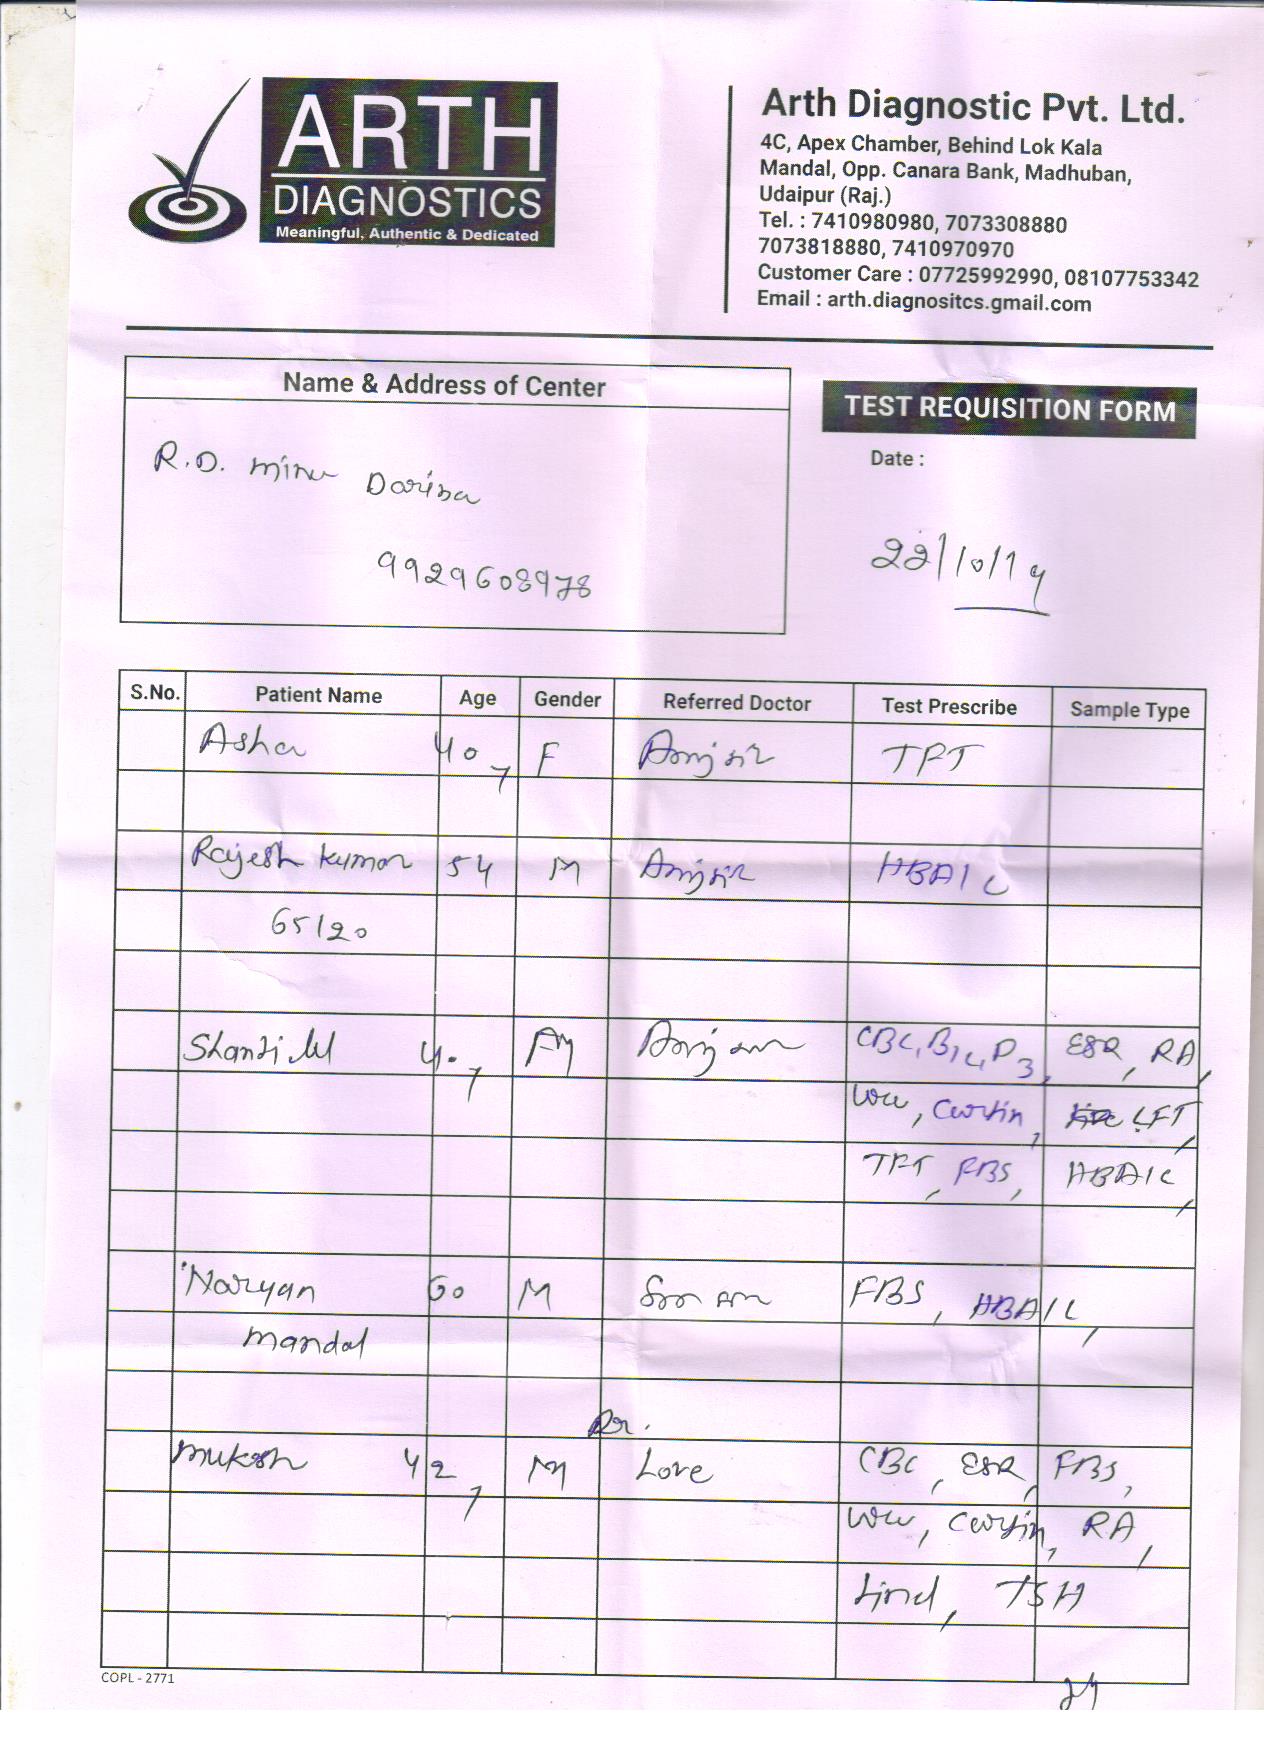 ARTH
DIAGNOSTICS
Meaningful, Authentic & Dedicated
Arth Diagnostic Pvt. Ltd.
4C, Apex Chamber, Behind Lok Kala
Mandal, Opp. Canara Bank, Madhuban,
Udaipur (Raj.)
Tel. : 7410980980, 7073308880
7073818880, 7410970970
Customer Care : 07725992990, 08107753342
Email : arth.diagnositcs.gmail.com
Name & Address of Center
TEST REQUISITION FORM
Date :
R.D. Dariba
9929608978
22/10/19
S.No. Patient Name Age Gender Referred Doctor Test Prescribe Sample Type
Asha 40 F TFT
Rajesh Kumar 54 M HBA1C
65120
Shantilal 40 CBC, D3, ESR, RA,
LFT,
TFT, FBS, HBA1C,
Naryan 60 M FBS, HBA1C,
Mandal
Dr.
Mukesh 42, M Love CBC, ESR, FBS,
RA,
TSH
COPL - 2771